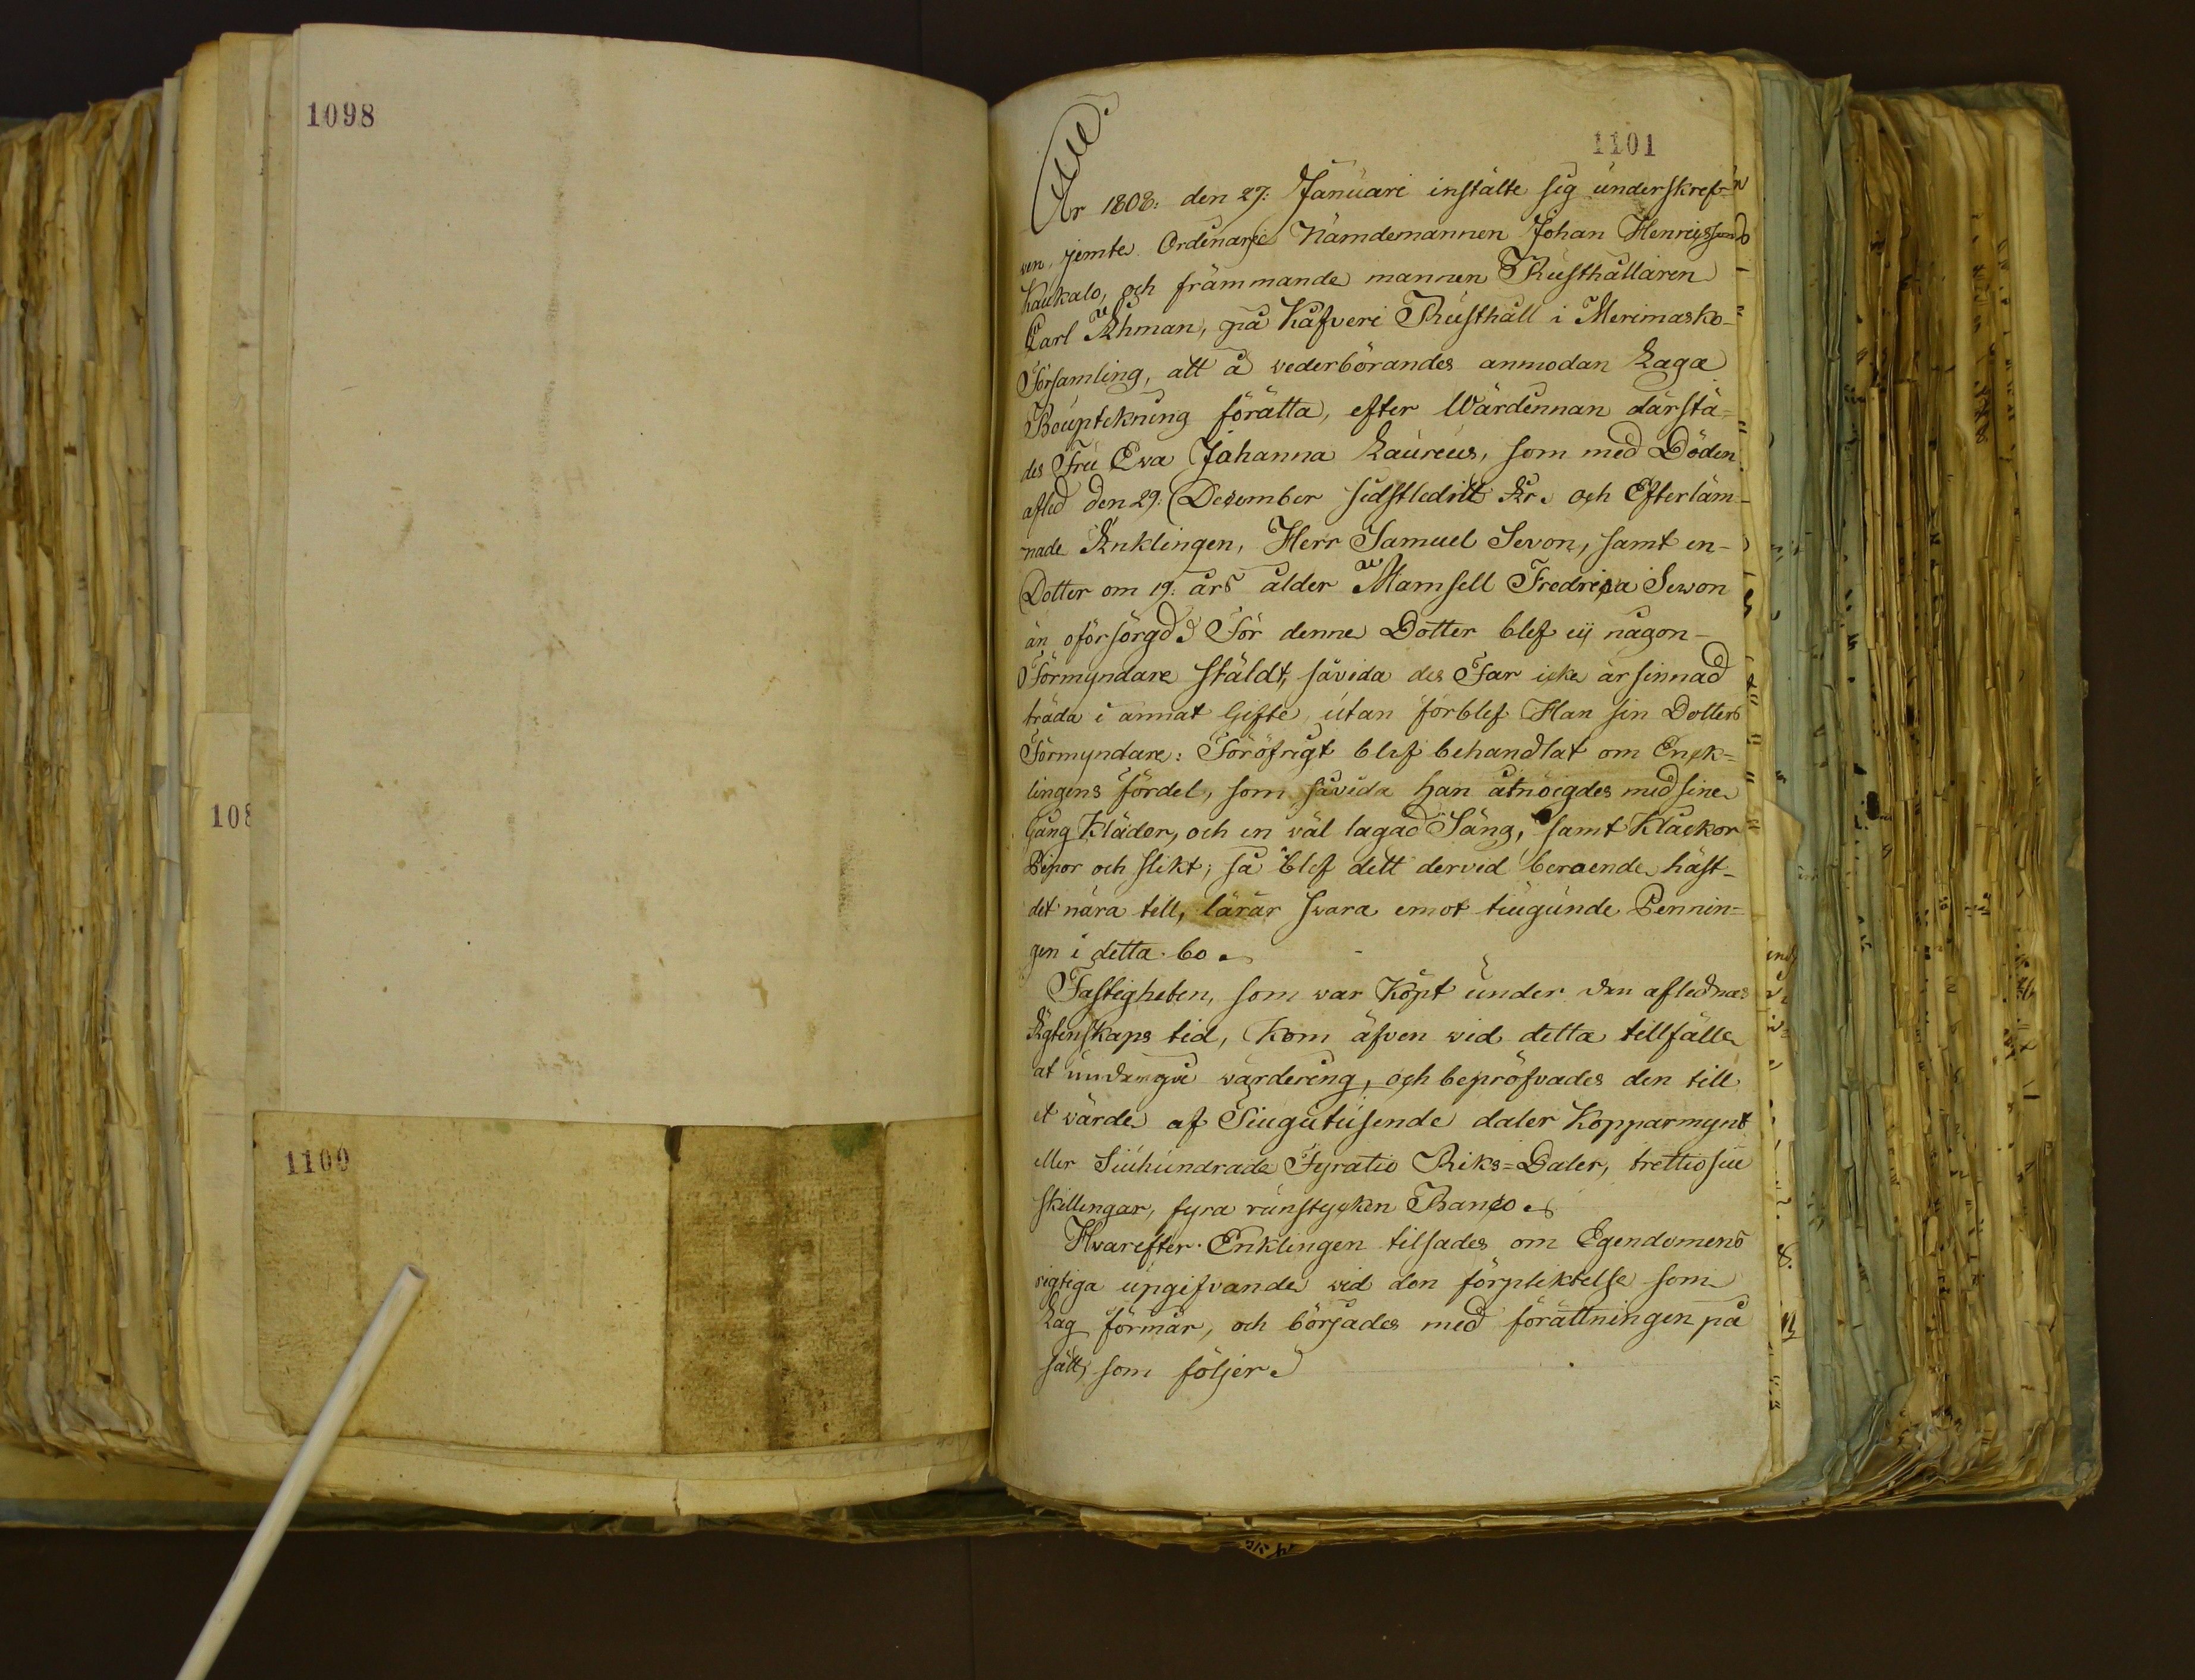 1098
108
1100
1101
År 1808: den 27: Januari instälte sig underskref-
ven, jemte Ordinarie Nämdemannen Johan Henricsson
Kaukalo, och främmande mannen Rusthållaren
Carl Åhman, på Kåfveri Rusthåll i Merimasko-
Församling, att å vederbörandes anmodan Laga
Bouptekning förätta, efter Wärdinnan därstä-
des Fru Eva Johanna Laureus, som med Döden
afled den 29: December sidstledit År. och Efterläm-
nade Änklingen, Herr Samuel Sevon, samt en-
Dotter om 19: års ålder Mamsell Fredrica Sewon
än oförsörgd. För denne Dotter blef eij någon-
Förmyndare ställdt, såvida des Far icke är sinnad
träda i annat Gifte, utan förblef Han sin Dotters
Förmyndare: Föröfrigt blef behandlat om Enck-
lingens fördel, som såvida han åtnöigdes med sine
Gång Kläder, och en väl lagad Säng, samt Klackor
Pipor och slikt; så blef dett dervid beroende, häst-
det nära till, lärar svara emot tiugunde Pennin-
gen i detta bo.
Fastigheten, som war Köpt under den aflednas
Ägtenskaps tid, kom äfven wid detta tillfälle
at undergå värdering, och bepröfvades den till
et wärde af Siugutusende daler Kopparmynt
eller Siuhundrade Fyratio Riks=Daler, trettiosiu
skillingar, fyra runstycken Banco.
Hvarefter Enklingen tilsades om Egendomens
rigtiga upgifvande wid den förpliktelse som
Lag förmår, och börjades med förättningen på
sätt, som följer.